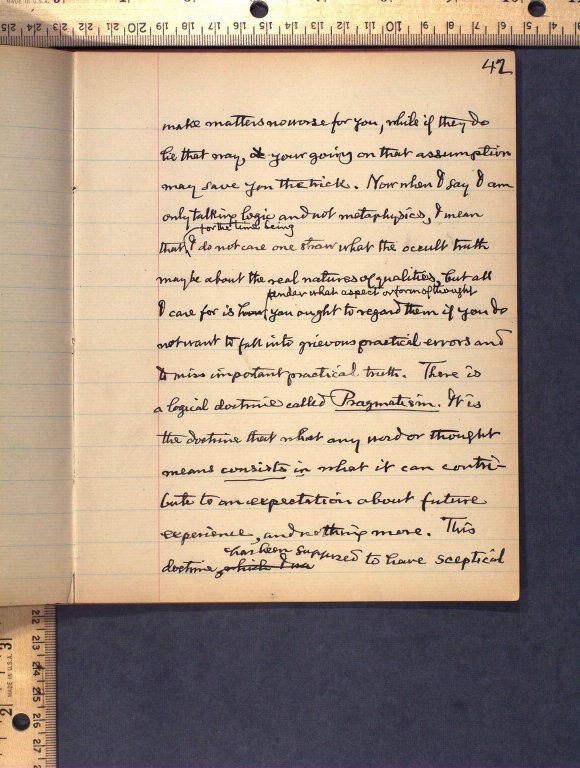 42
make matters no worse for you, while if they do
lie that way, your going on that assumption
may save you the trick. Now when I say I am
only talking logic and not metaphysics, I mean
for the time being
that I do not care one straw what the occult truth
may be about the real natures of qualities, but all
under what aspect or form of thought
I care for is how you ought to regard them if you do
not want to fall into grievous practical errors and
to miss important practical truth. There is
a logical doctrine called Pragmatism. It is
the doctrine that what any word or thought
means consists in what it can contri-
bute to an expectation about future
experience, and nothing more. This
has been supposed to have sceptical
doctrine, which I wa